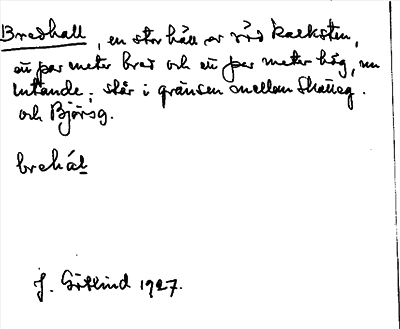 Bredhall, en stor häll av röd kalksten,
ett par meter bred och ett par meter hög, nu
lutande; står i gränsen mellan Skälleg.
och Björsg.
brehál
J. Götlind 1927.